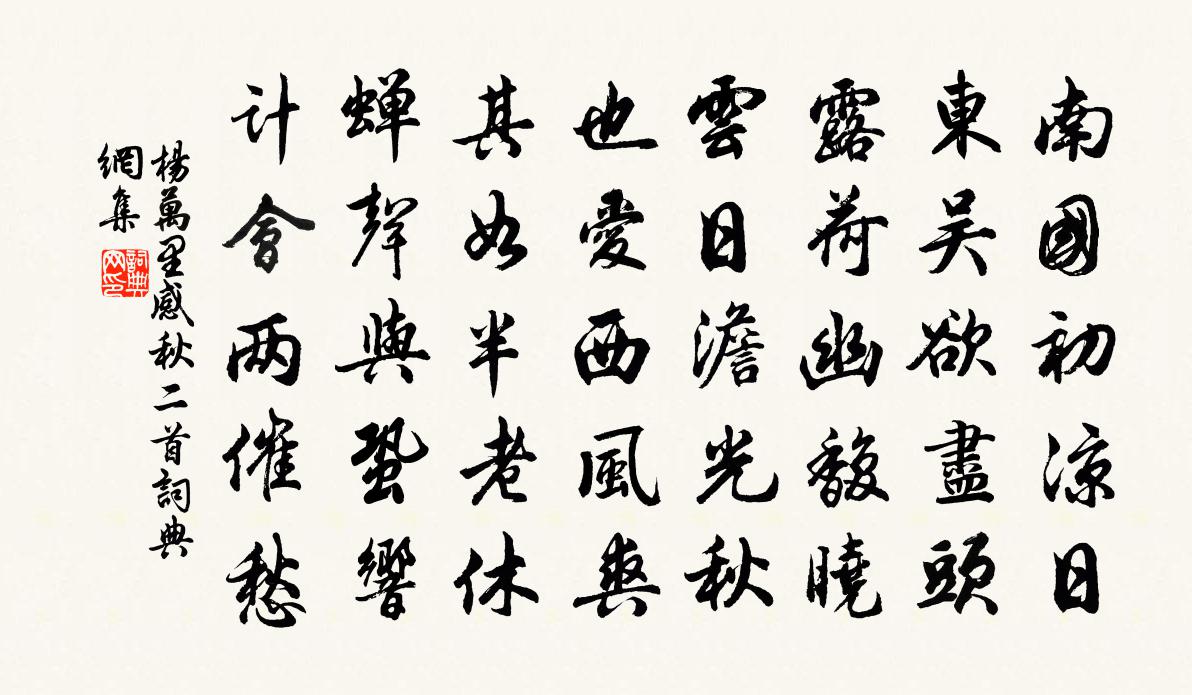 南國初涼日
東吴欲盡頭
露荷幽馥曉
雲日澹光秋
也愛西風爽
其如半老休
蝉聲與蛩響
计會两催愁
楊萬里感秋二首詞典
網集
詞典
网印